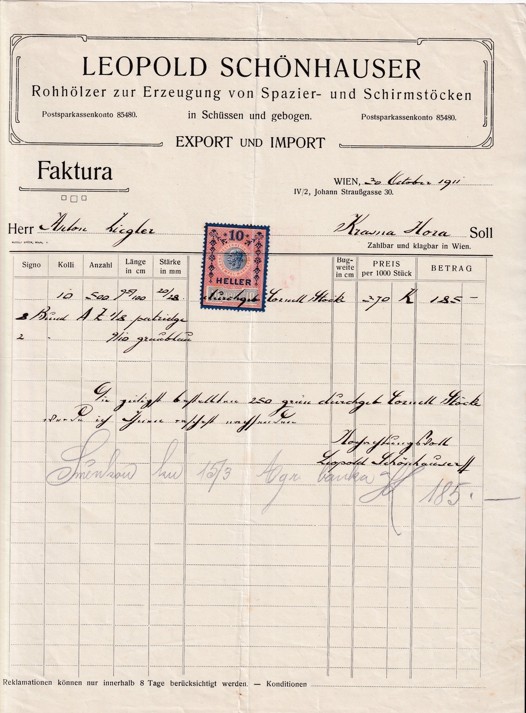 LEOPOLD SCHÖNHAUSER
Rohhölzer zur Erzeugung von Spazier- und Schirmstöcken
Postsparkassenkonto 85480.
in Schüssen und gebogen.
Postsparkassenkonto 85480.
EXPORT UND IMPORT
Faktura
WIEN, 30 October 1911
IV/2, Johann Straußgasse 30.
Herr Anton Ziegler Krasna Hora Soll
Zahlbar und klagbar in Wien.
Signo Kolli Anzahl Länge in cm Stärke in mm Bugweite in cm PREIS per 1000 Stück BETRAG
10
HELLER
10 500 durchgeb Cornell Stöcke 370 K 185 –
2 Bund A Z
2
Die gefligst bestellten 250 grün durchgeb Cornell Stöcke
werde ich Ihnen nachsenden
Hochachtungsvoll
Leopold Schönhauser
15/3 banka 185.–
Reklamationen können nur innerhalb 8 Tage berücksichtigt werden. — Konditionen